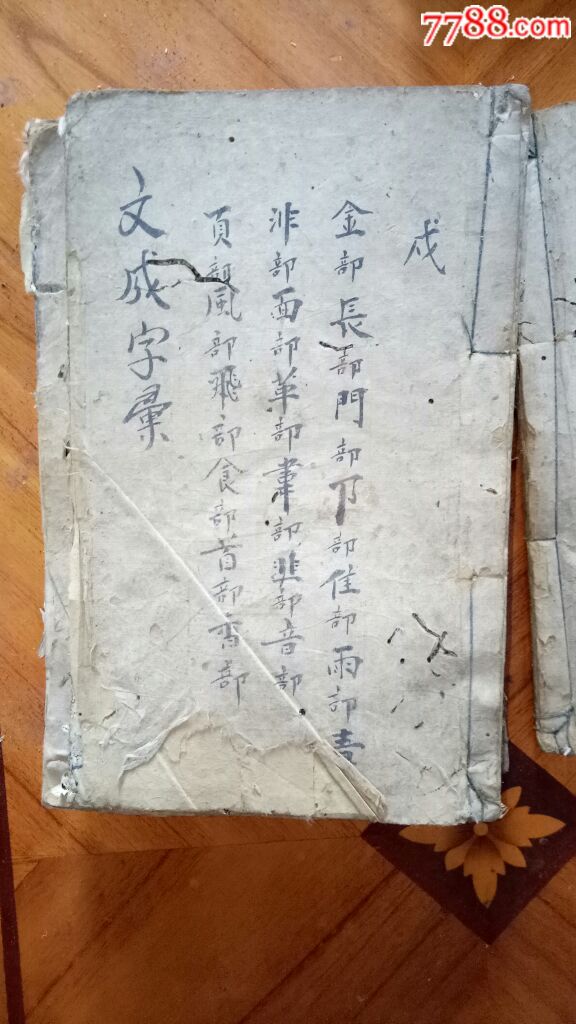 7788.com
戌
金部長部門部阝部隹部雨部青
非部面部革部韋部韭部音部
頁部風部飛部食部首部香部
文成字彙